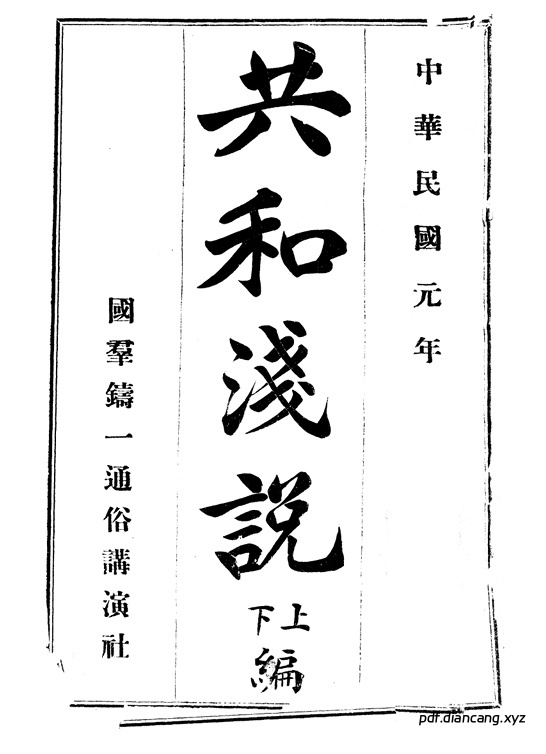 中華民國元年
共和淺說
上下編
國羣鑄一通俗講演社
pdf.diancang.xyz